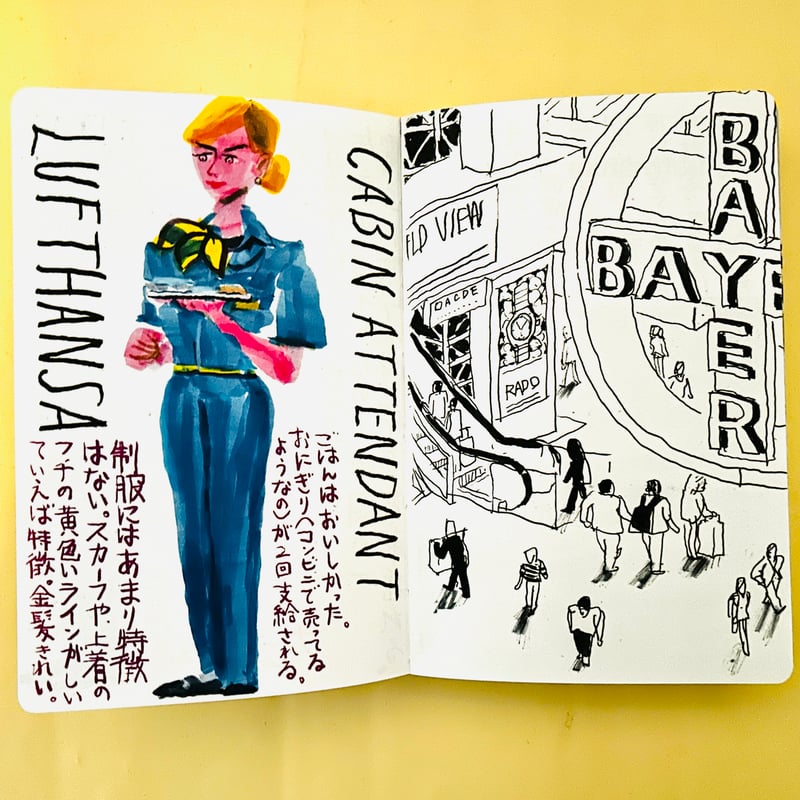 LUFTHANSA
CABIN ATTENDANT
ごはんはおいしかった。
おにぎり(コンビニで売ってる
ようなの)が2回支給される。
制服にはあまり特徴
はない。スカーフや、上着の
フチの黄色いラインがしい
ていえば特徴。金髪きれい。
FLD VIEW
OACDE
RADO
BAYER
BAYE